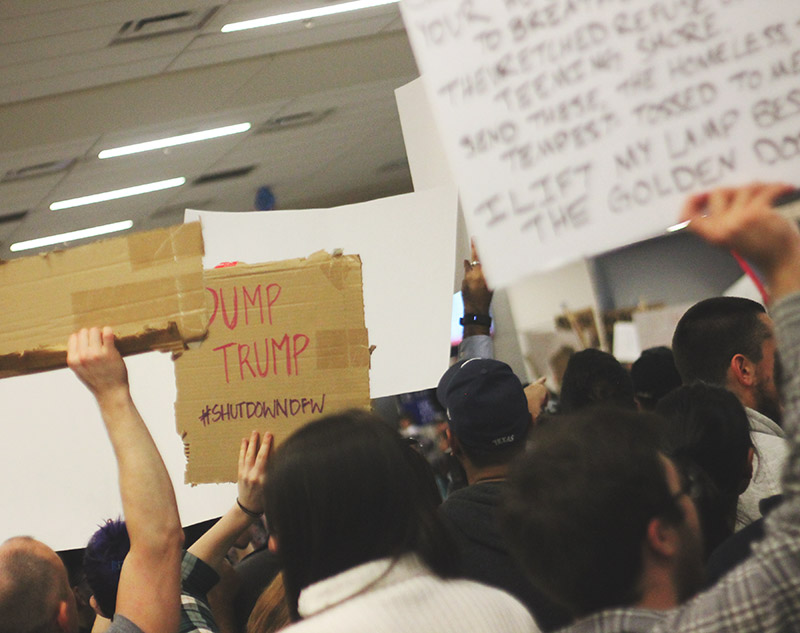 YOUR
TO BREATHE
THE WRETCHED REFUSE
TEEMING SHORE
SEND THESE, THE HOMELESS
TEMPEST TOSSED TO ME
I LIFT MY LAMP BES
THE GOLDEN DOO
DUMP
TRUMP
#SHUTDOWNDFW
TEXAS